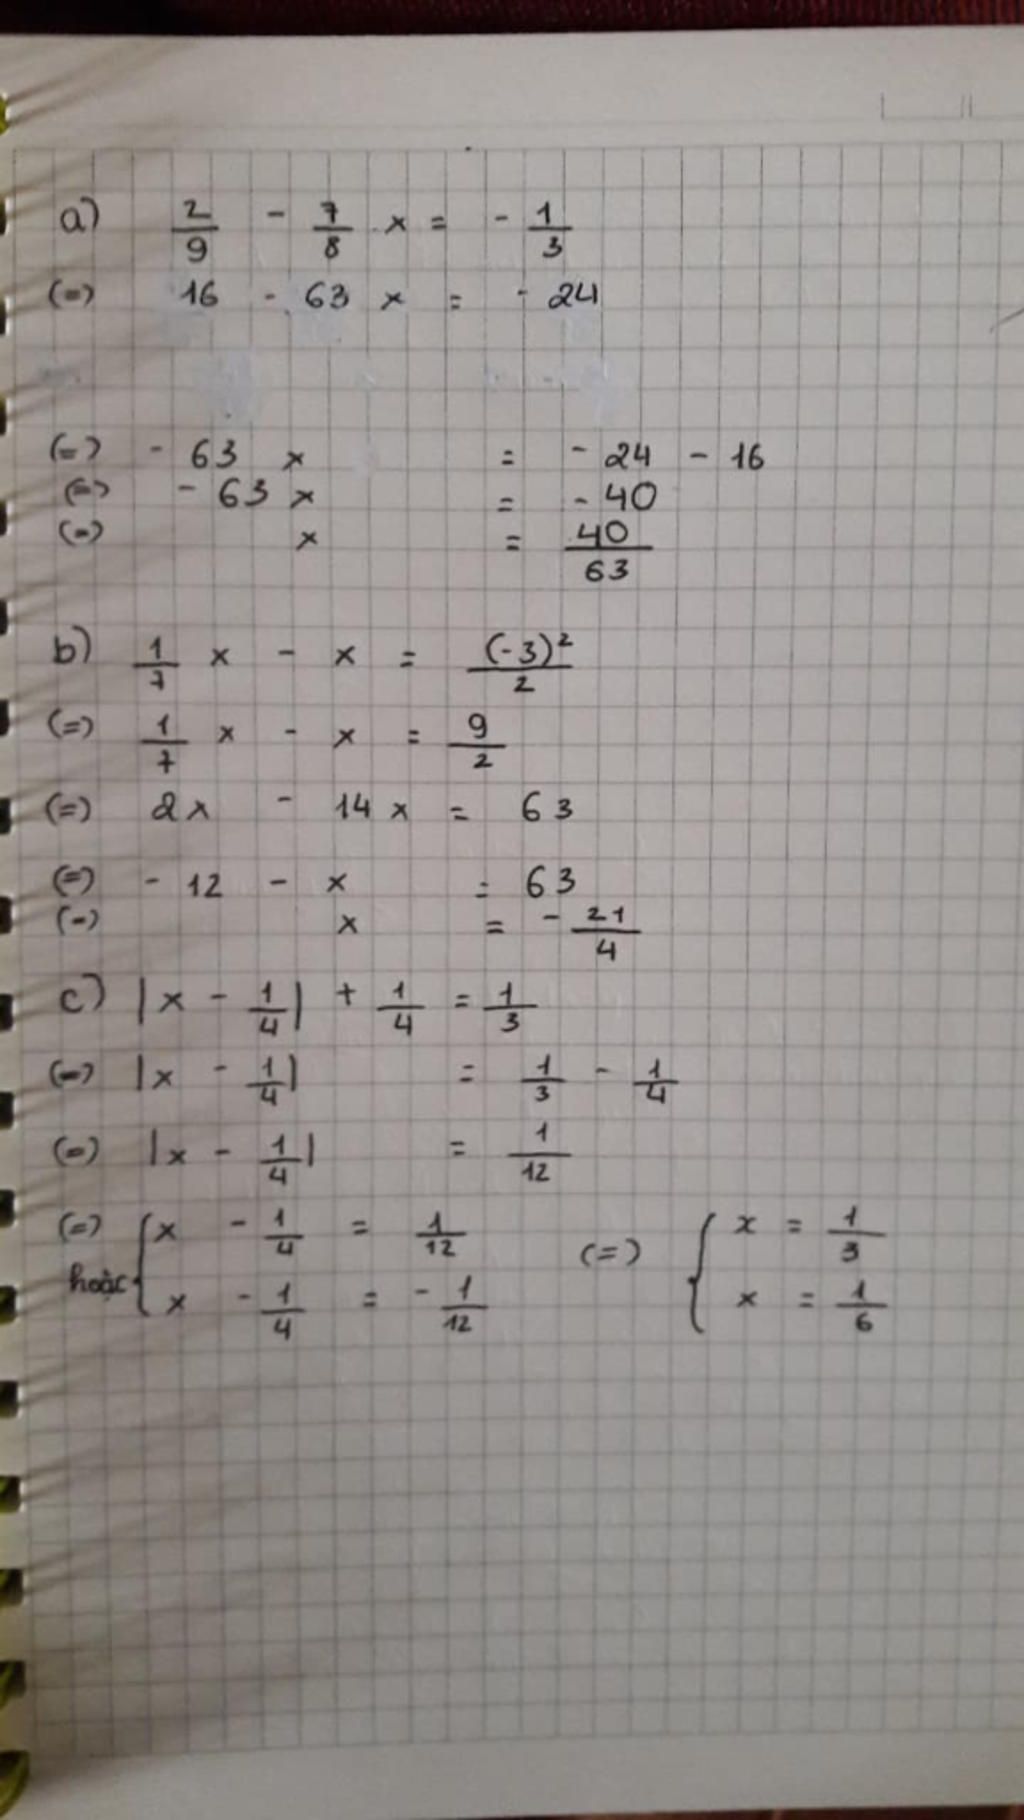 a) 2/9 - 7/8 x = - 1/3
(=) 16 - 63 x = - 24
(=) - 63 x = - 24 - 16
(=) - 63 x = - 40
(=) x = 40/63
b) 1/7 x - x = (-3)²/2
(=) 1/7 x - x = 9/2
(=) 2x - 14 x = 63
(=) - 12 - x = 63
(=) x = - 21/4
c) |x - 1/4| + 1/4 = 1/3
(=) |x - 1/4| = 1/3 - 1/4
(=) |x - 1/4| = 1/12
(=) { x - 1/4 = 1/12 (=) { x = 1/3
hoặc { x - 1/4 = - 1/12 { x = 1/6